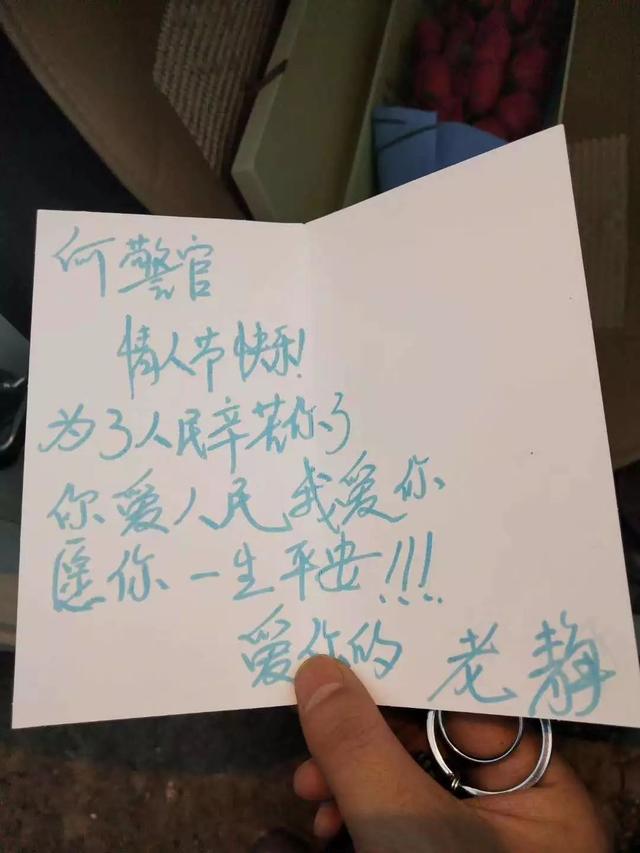 何警官
情人节快乐!
为了人民辛苦你了
你爱人民 我爱你
愿你一生平安!!!
爱你的 老静